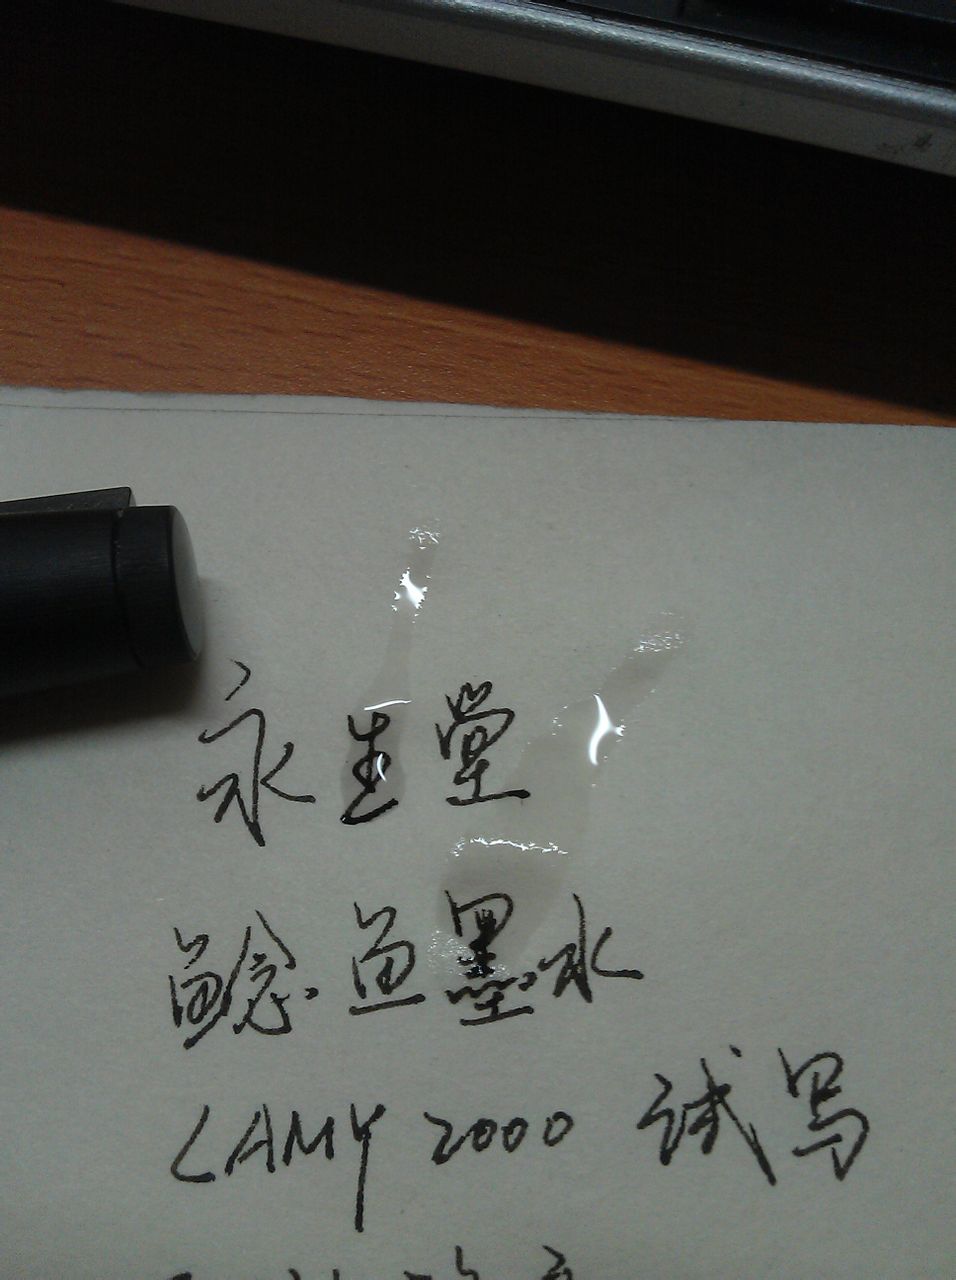 永生堂
鲶鱼墨水
LAMY 2000 试写